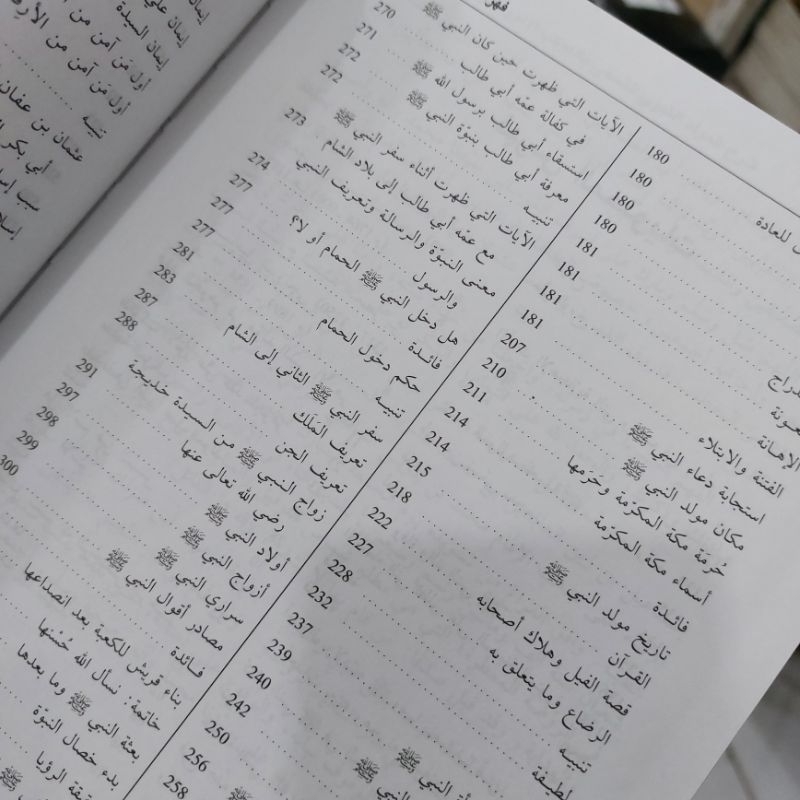 فهر
للعادة 180
180
180
180
181
181
الإهانة 181
الفتنة والابتلاء 181
استجابة دعاء النبي ﷺ 207
مكان مولد النبي ﷺ 210
حُرمَة مكة المكرّمة وحَرَمها 211
أسماء مكة المكرّمة 214
فائدة 214
تاريخ مولد النبي ﷺ 215
القرآن 218
قصة الفيل وهلاك أصحابه 222
الرضاع وما يتعلق به 227
تنبيه 228
لطيفة 232
237
239
240
242
250
256
258
الآيات التي ظهرت حين كان النبي ﷺ
في كفالة عمّه أبي طالب 270
استسقاء أبي طالب برسول الله ﷺ 271
معرفة أبي طالب بنبوّة النبي ﷺ 272
تنبيه 272
الآيات التي ظهرت أثناء سفر النبي ﷺ
مع عمّه أبي طالب إلى بلاد الشام 273
معنى النبوّة والرسالة وتعريف النبي
والرسول 274
هل دخل النبي ﷺ الحمام أو لا؟ 277
فائدة 277
حكم دخول الحمام 277
تنبيه 281
سفر النبي ﷺ الثاني إلى الشام 283
تعريف المَلَك 287
تعريف الجن 288
زواج النبي ﷺ من السيدة خديجة
رضي الله تعالى عنها 291
أولاد النبي ﷺ 297
أزواج النبي ﷺ 298
سراري النبي ﷺ 299
مصادر أقوال النبي ﷺ 300
فائدة
بناء قريش للكعبة بعد انصداعها
خاتمة: نسأل الله حُسْنها
بعثة النبي ﷺ وما بعدها
بدء خصال النبوّة
الرؤيا
إيمان علي
إيمان السيدة
أول مَن آمن من
أول مَن آمن من
تنبيه
عثمان بن عفان
أبي بكر